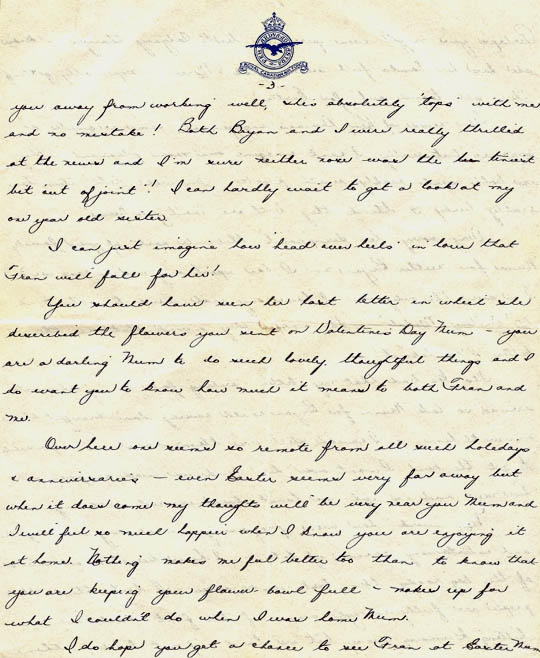 ROYAL CANADIAN AIR FORCE
- 3 -
you away from working well, she's absolutely 'tops' with me
and no mistake! Both Bryan and I were really thrilled
at the news and I'm sure neither nose was the tiniest
bit 'out of joint'! I can hardly wait to get a look at my
one year old sister.
I can just imagine how 'head over heels' in love that
Fran will fall for her!
You should have seen her last letter in which she
described the flowers you sent on Valentine's Day Mum - you
are a darling Mum to do such lovely, thoughtful things and I
do want you to know how much it means to both Fran and
me.
Over here one seems so remote from all such holidays
& anniversaries - even Easter seems very far away but
when it does come my thoughts will be very near you Mum and
I will feel so much happier when I know you are enjoying it
at home. Nothing makes me feel better too than to know that
you are keeping your flower-bowl full - makes up for
what I couldn't do when I was home Mum.
I do hope you get a chance to see Fran at Easter Mum